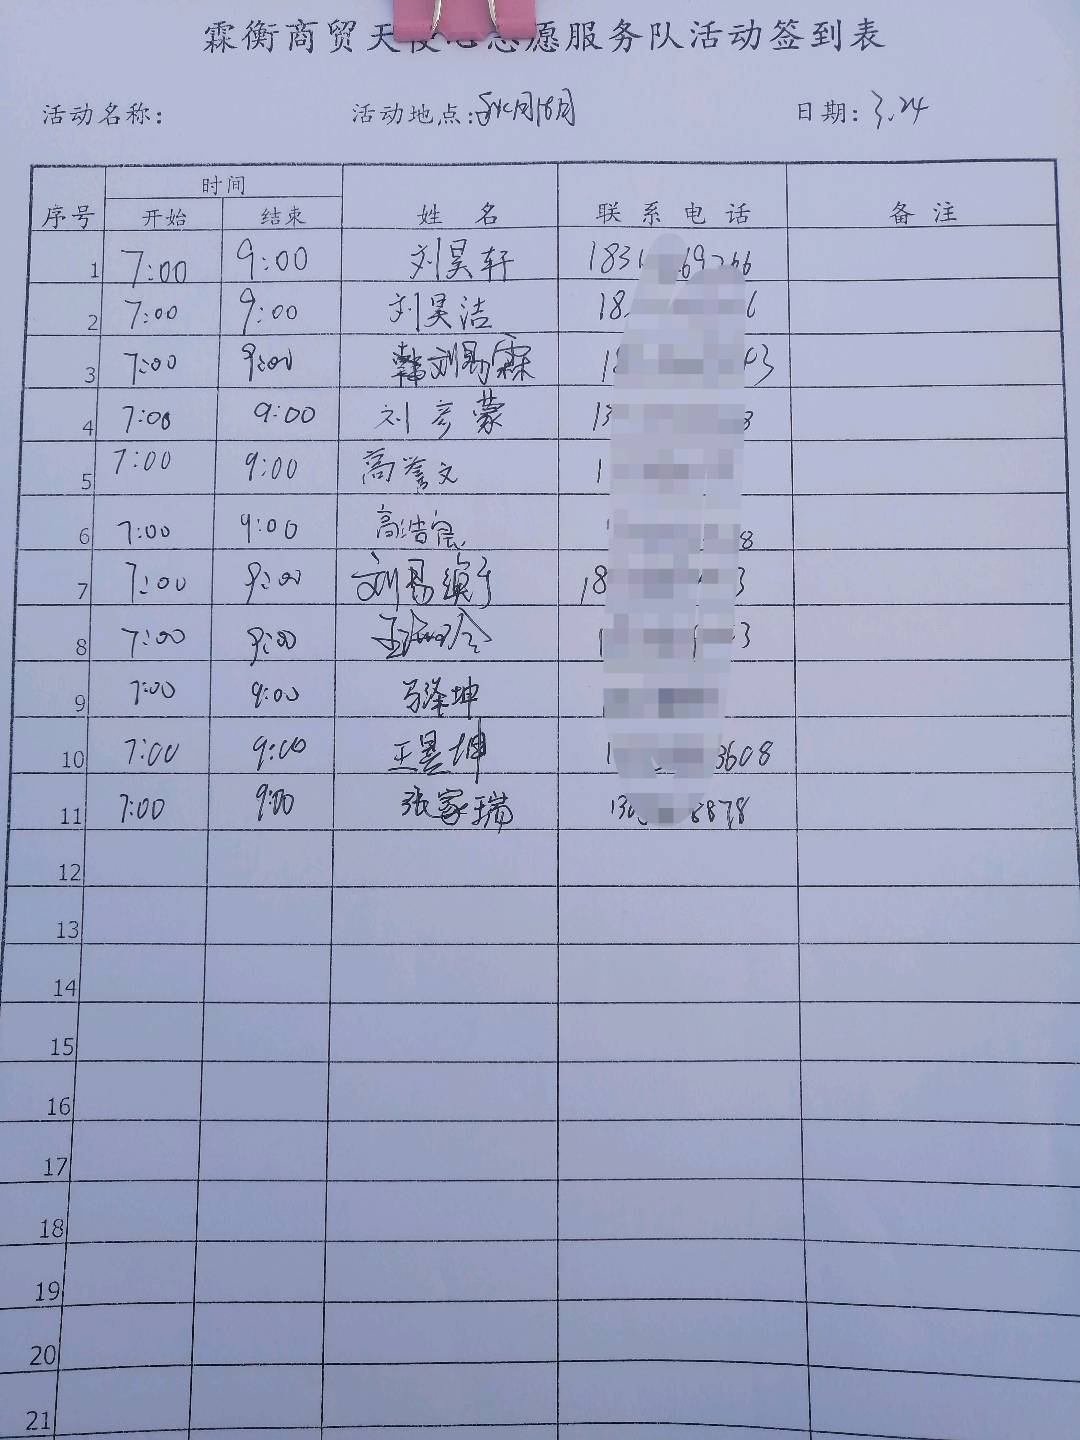 霖衡商贸天使心志愿服务队活动签到表
活动名称: 活动地点: 日期: 3.24
序号 时间 姓名 联系电话 备注
开始 结束
1 7:00 9:00 刘昊轩 183 69766
2 7:00 9:00 刘昊洁 18 6
3 7:00 9:00 韩刘易霖 18 43
4 7:00 9:00 刘彦蒙 13 3
5 7:00 9:00 高誉文 1
6 7:00 9:00 高浩宸 8
7 7:00 9:00 刘易 18 3
8 7:00 9:00 3
9 7:00 9:00 马泽坤
10 7:00 9:00 王昱坤 1 3608
11 7:00 9:00 张家瑞 130 8878
12
13
14
15
16
17
18
19
20
21